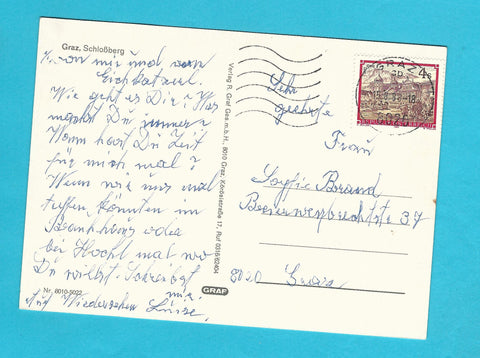 Graz, Schloßberg
von mir und vom
Eichkatzerl.
Wie geht es Dir? Was
machst Du immer?
Wann hast Du Zeit
für mich mal?
Wenn wir uns mal
treffen könnten im
Krankhaus oder
bei Hochl mal wo
Du willst. Schreibst
mir.
Auf Wiedersehen Luise.
Nr. 8010-5022
Verlag R. Graf Ges.m.b.H., 8010 Graz, Körösistraße 17, Ruf 0316/62404
GRAF
4 S
GRAZ
8020
Sehr
geehrte
Frau
Sophie Brand
37
8020 Graz